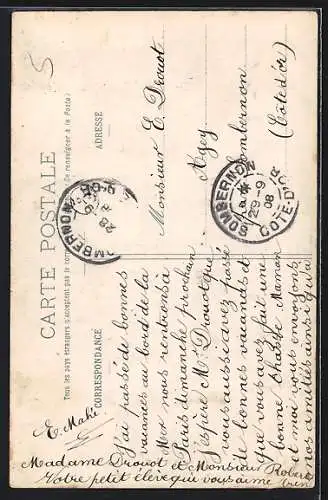 CARTE POSTALE
Tous les pays étrangers n'acceptent pas la correspondance
Se renseigner à la Poste
CORRESPONDANCE
ADRESSE
5
J'ai passé de bonnes
vacances au bord de la
Mer nous rentrons à
Paris dimanche prochain
J'espère Mr Drouot que
vous aussi avez passé
de bonnes vacances et
que vous avez fait une
bonne chasse Maman
et moi vous envoyons
nos amitiés ainsi qu'à
Madame Drouot et Monsieur Robert
Votre petit élève qui vous aime bien
E. Mahé
Monsieur E. Drouot
Agey
Sombernon
(Côte d'Or)
SOMBERNON
29-9
08
COTE-D'OR
SOMBERNON